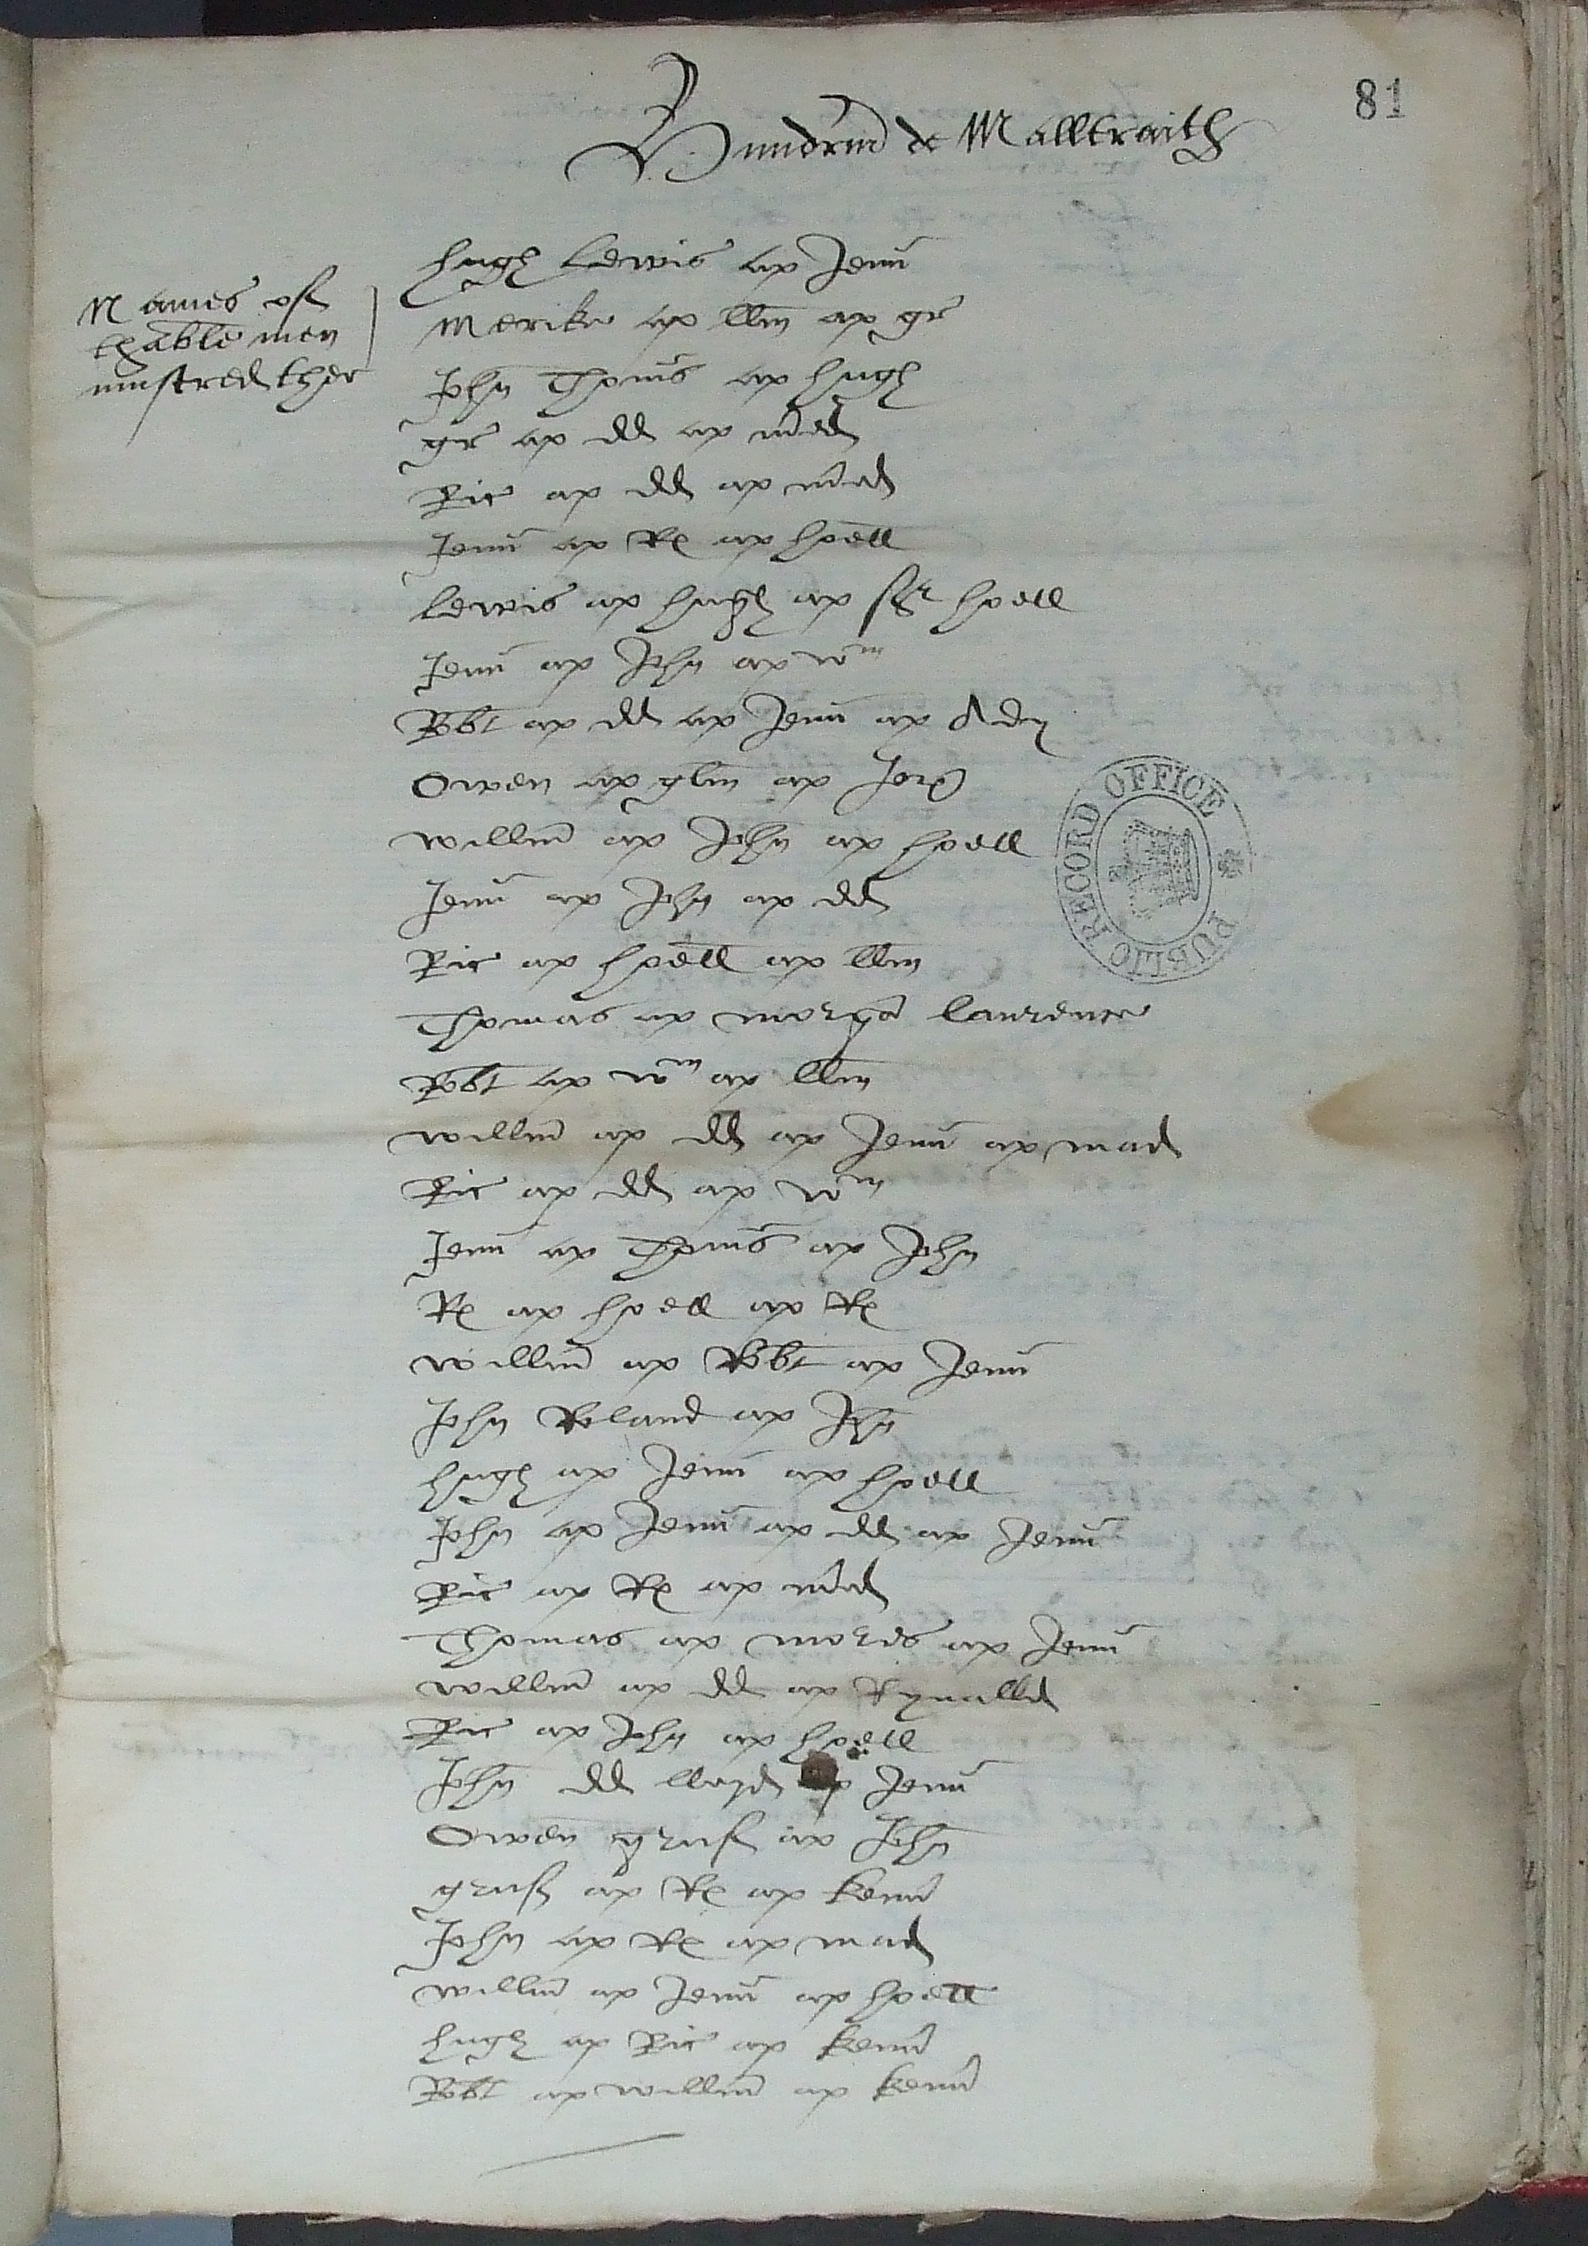 81
Hundrm de Malltraith
Names of
thable men
mustred ther
hugh Lewis ap Jeun
Merike ap lln ap gr
John Thoms ap hugh
gr ap dd ap mred
Ric ap dd ap mred
Jeun ap Re ap hoell
Lewis ap hugh ap Sr hoell
Jeun ap John ap wm
Robt ap dd ap Jeun ap Ady
Owen ap glm ap Jor
willm ap John ap hoell
Jeun ap John ap dd
Ric ap hoell ap lln
Thomas ap morga laurence
Robt ap wm ap lln
willm ap dd ap Jeun ap mad
Ric ap dd ap wm
Jeun ap Thoms ap John
Re ap hoell ap Re
willm ap Robt ap Jeun
John Roland ap John
hugh ap Jeun ap hoell
John ap Jeun ap dd ap Jeun
Ric ap Re ap mred
Thomas ap mores ap Jeun
willm ap dd ap Rynalld
Ric ap John ap hoell
John dd lloyd ap Jeun
Owen gruf ap John
gruf ap Re ap kenn
John ap Re ap mad
willm ap Jeun ap hoell
hugh ap Ric ap kenn
Robt ap willm ap kenn
PUBLIC RECORD OFFICE